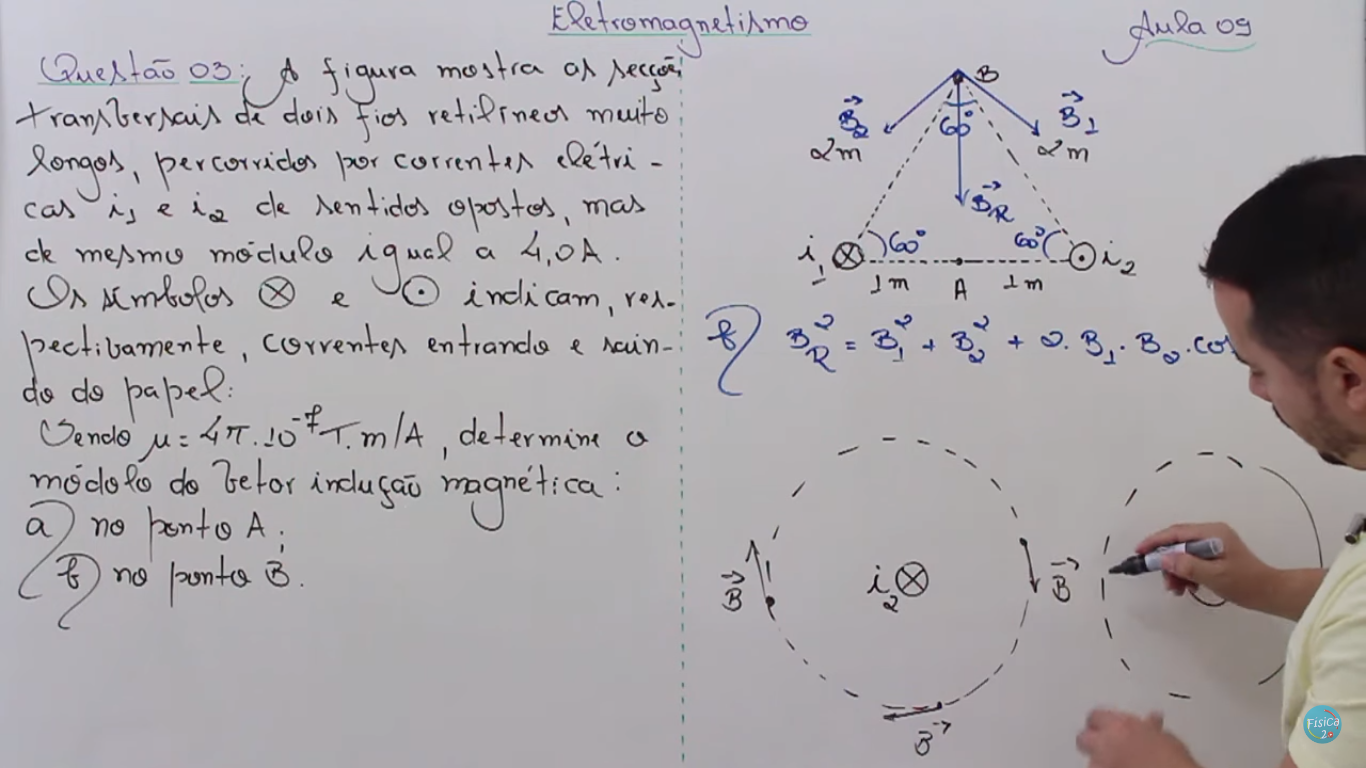 Eletromagnetismo
Aula 09
Questão 03: A figura mostra as secções
transversais de dois fios retilíneos muito
longos, percorridos por correntes elétri-
cas i1 e i2 de sentidos opostos, mas
de mesmo módulo igual a 4,0A.
Os símbolos ⊗ e ⊙ indicam, res-
pectivamente, correntes entrando e sain-
do do papel:
Sendo μ = 4π.10⁻⁷T.m/A, determine o
módulo do vetor indução magnética:
a) no ponto A;
b) no ponto B.
B
B⃗2
60°
B⃗1
2m
2m
B⃗R
i1 ⊗ 60°
60° ⊙ i2
1m A 1m
b) B²R = B²1 + B²2 + 2.B1.B2.cos
B⃗
i2 ⊗
B⃗
B⃗
Física
2.0